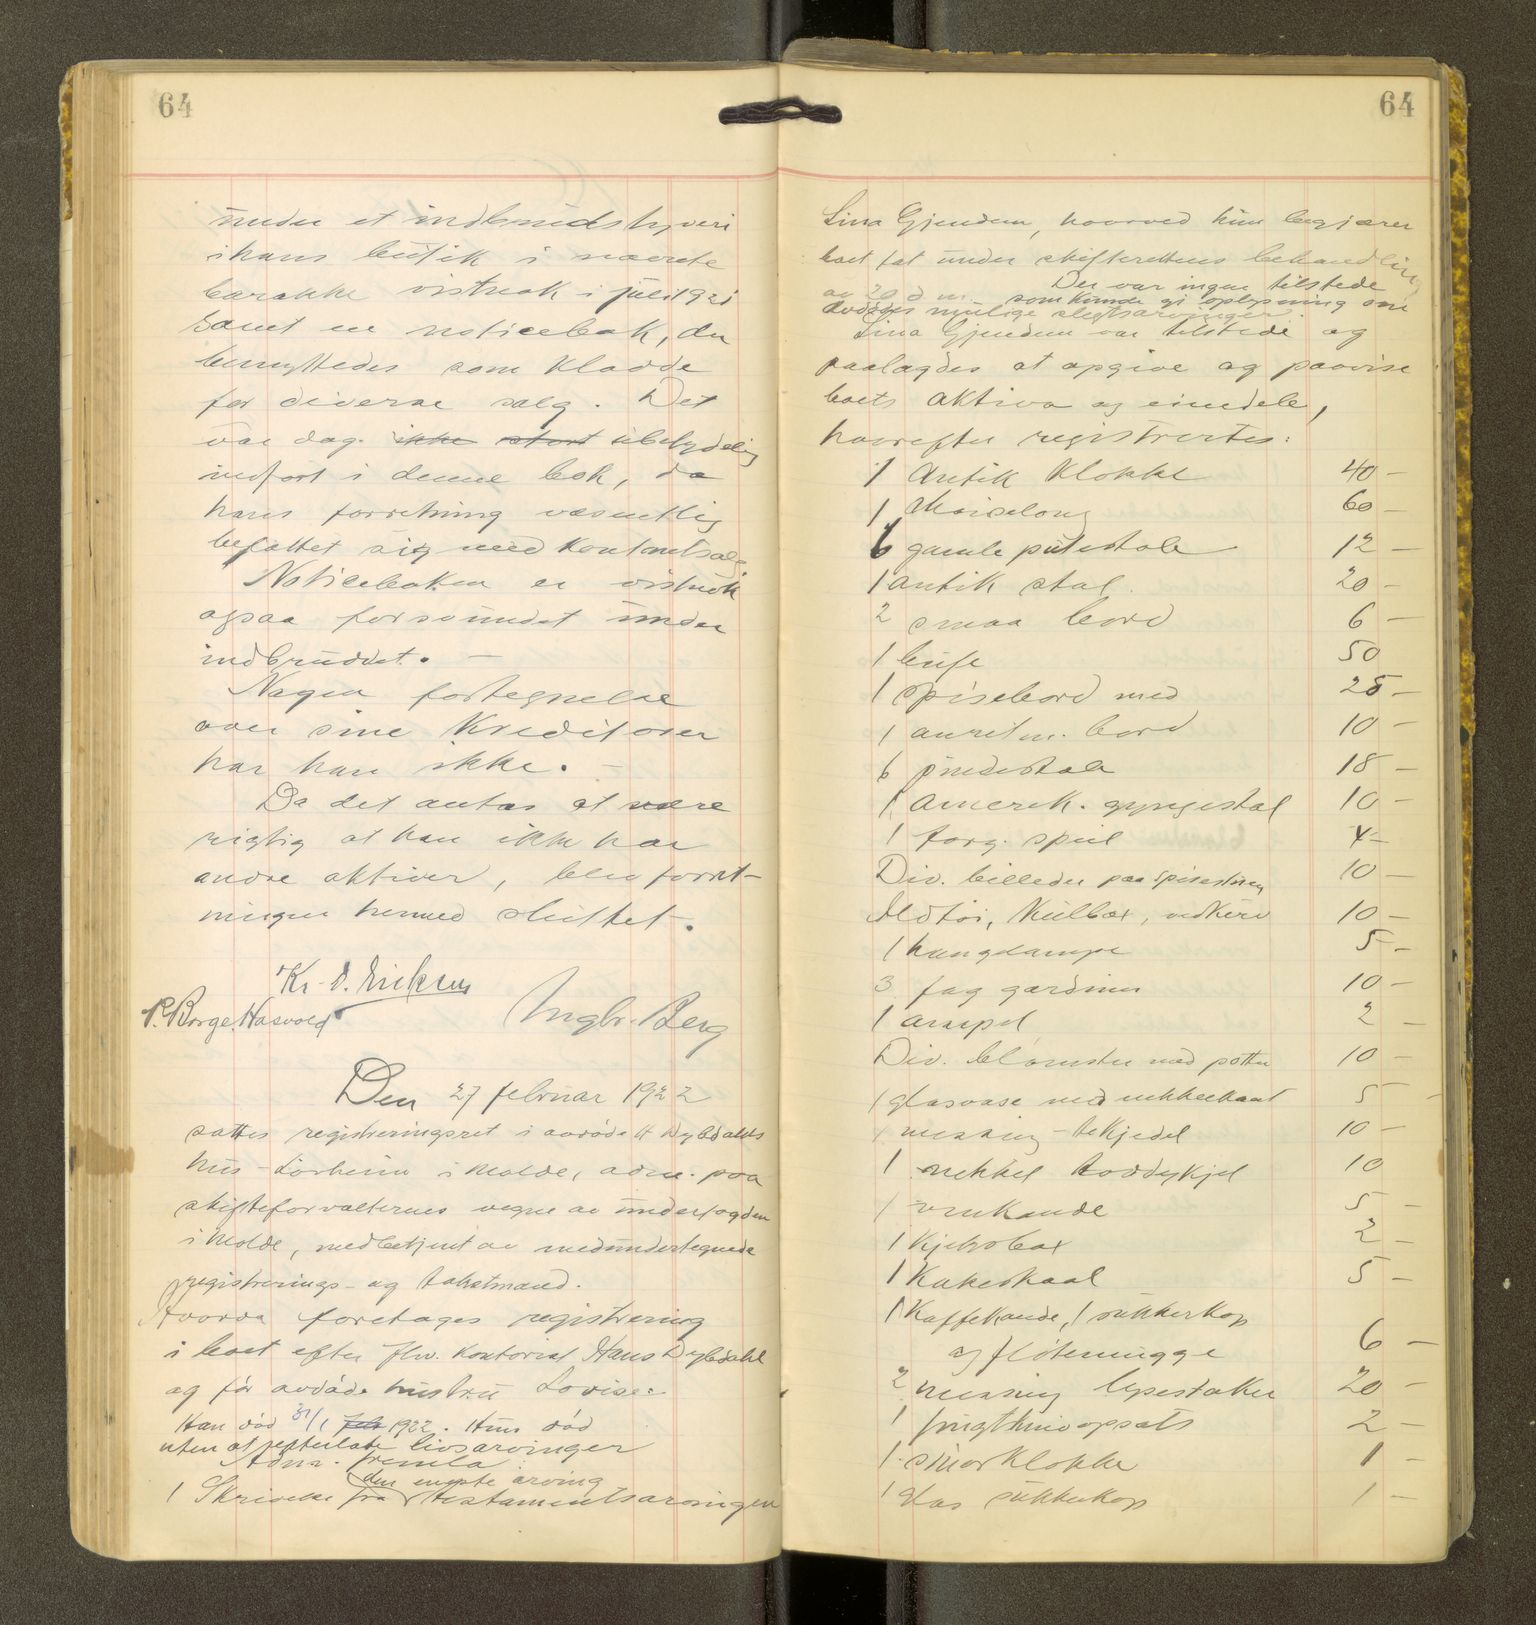 64
under et indbrudstyveri
i hans butik i nævnte
barakke vistnok i juli 1921
samt en noticebok, der
benyttedes som kladde
for diverse salg. Det
var dog ikke stort ubetydelig
indført i denne bok, da
hans forretning væsentlig
befattet sig med kontantsalg
Noticeboken er vistnok
ogsaa forsvundet under
indbruddet. —
Nogen fortegnelse
over sine kreditorer
har han ikke. —
Da det antas at være
rigtig at han ikke har
andre aktiver, blev forret-
ningen hermed sluttet.
Kr. D. Eriksen
P. Borge Hasvold
Ingbr. Berg
Den 27 februar 1922
sattes registreringsret i avdøde H Dybdahls
hus i Molde, adm. paa
skifteforvalterens vegne av underfogden
i Molde, medbetjent av medundertegnede
registrerings- og takstmænd.
Hvorda foretages registrering
i boet efter fhv. kontorist Hans Dybdahl
og før avdøde hustru Lovise:
Han død 31/1 feb 1922. Hun død
uten at efterlate livsarvinger
Adm. fremla
den eneste arving
1 Skrivelse fra testamentsarvingen
64
Lina Gjendem, hvorved hun begjærer
boet tat under skifterettens behandling
av 20 d m. Der var ingen tilstede
som kunde gi oplysning om
dødes mulige slegtsarvinger.
Lina Gjendem var tilstede og
paalagdes at opgive og paavise
boets aktiva og eiendele,
hvorefter registrertes:
1 antik klokke 40 –
1 chaiselong 60 –
6 gamle putestole 12 –
1 antik stol 20 –
2 smaa bord 6 –
1 bufe 50
1 spisebord med 25 –
1 anretn. bord 10 –
6 pindestole 18 –
1 amerik. gyngestol 10 –
1 forg. speil 4 –
Div. billeder paa spisestuen 10 –
Ildtøi, kulbox, vedkurv 10 –
1 hængelampe 5 –
3 fag gardiner 10 –
1 ampel 2 –
Div. blomster med potter 10 –
1 glasvase med nikkelkant 5 –
1 messing-tekjedel 10 –
1 nikkel toddykjel 10
1 vinkande 5 –
1 kjeksbox 2 –
1 kakeskaal 5 –
1 kaffekande, 1 sukkerkop
og fløtemugge 6 –
2 messing lysestaker 20 –
1 frugtknivopsats 2 –
1 smørklokke 1 –
1 glas sukkerkop 1 –